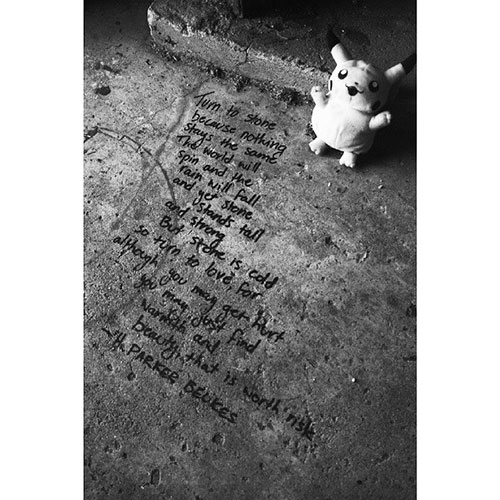 Turn to stone
because nothing
stays the same
The world will
spin and the
rain will fall
and yet stone
stands tall
and strong
But stone is cold
so turn to love for
although you may get hurt
you may just find
warmth and
beauty, that is worth risk
-H. PARKER BELKES